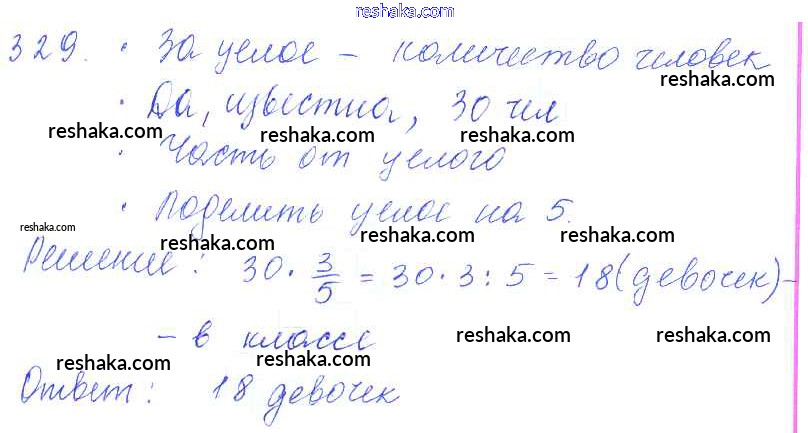 reshaka.com
329. • За целое – количество человек
reshaka.com
• Да, известна, 30 чел
reshaka.com reshaka.com reshaka.com
• Часть от целого
• Поделить целое на 5.
reshaka.com
reshaka.com reshaka.com reshaka.com
Решение: 30 · 3/5 = 30 · 3 : 5 = 18 (девочек) –
– в классе
reshaka.com reshaka.com reshaka.com
Ответ: 18 девочек